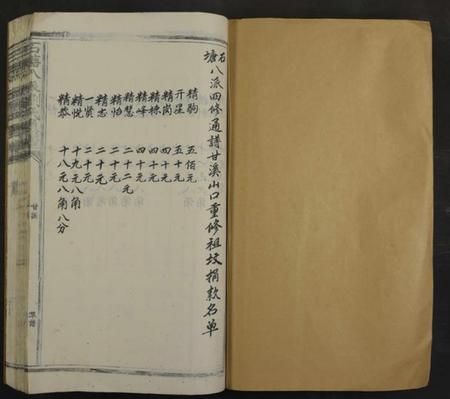 石塘八派四修通譜甘溪山口重修祖坟捐款名单
精驹 五佰元
开星 五十元
精岗 四十元
精棟 四十元
精峰 四十元
精慧 二十二元
精怡 二十元
精志 二十元
一贤 二十元
精悦 十九元八角
精恭 十八元八角八分
甘溪